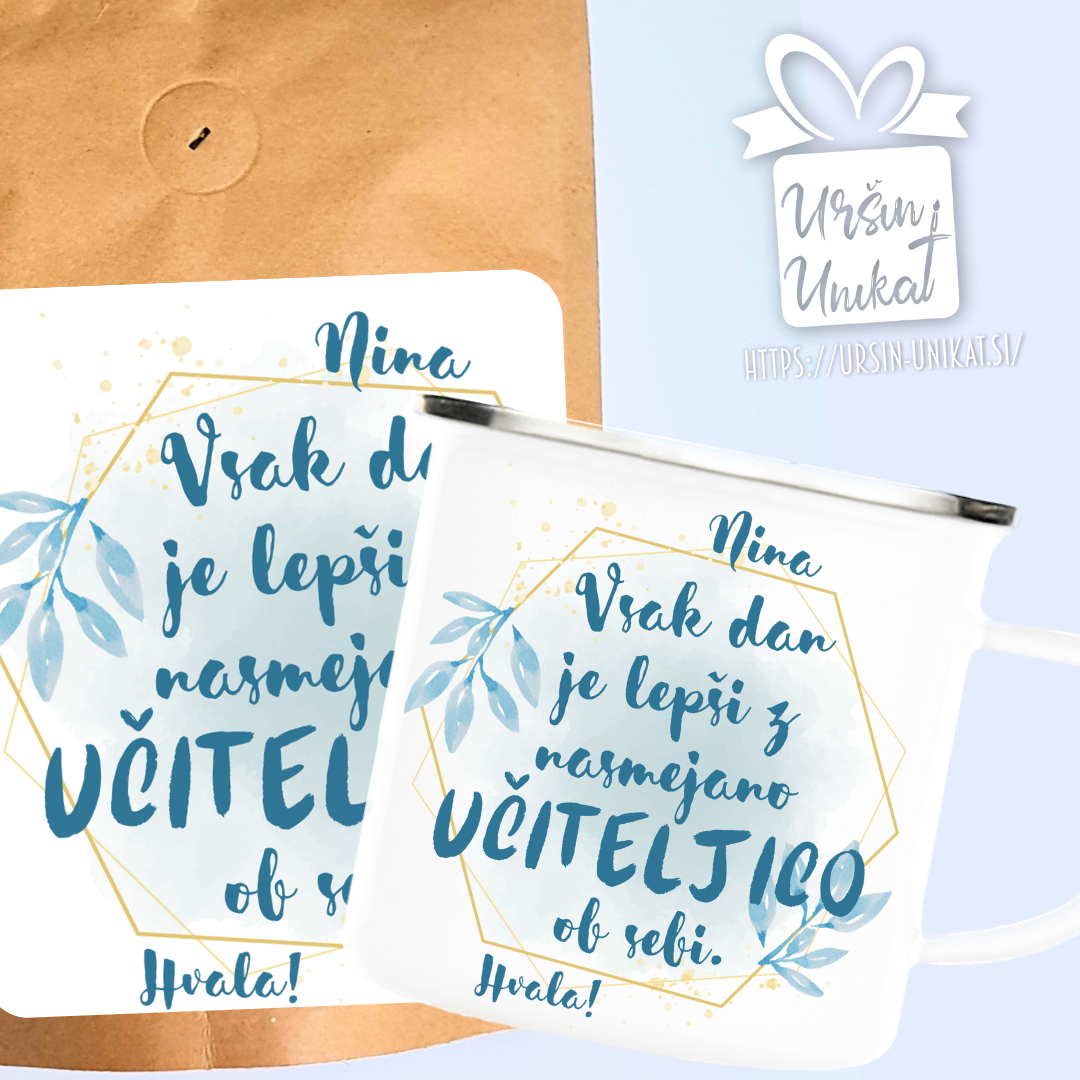 Uršin
Unikat
HTTPS://URSIN-UNIKAT.SI/
Nina
Vsak da
je lepši
nasmeja
UČITEL
ob se
Hvala!
Nina
Vsak dan
je lepši z
nasmejano
UČITELJICO
ob sebi.
Hvala!